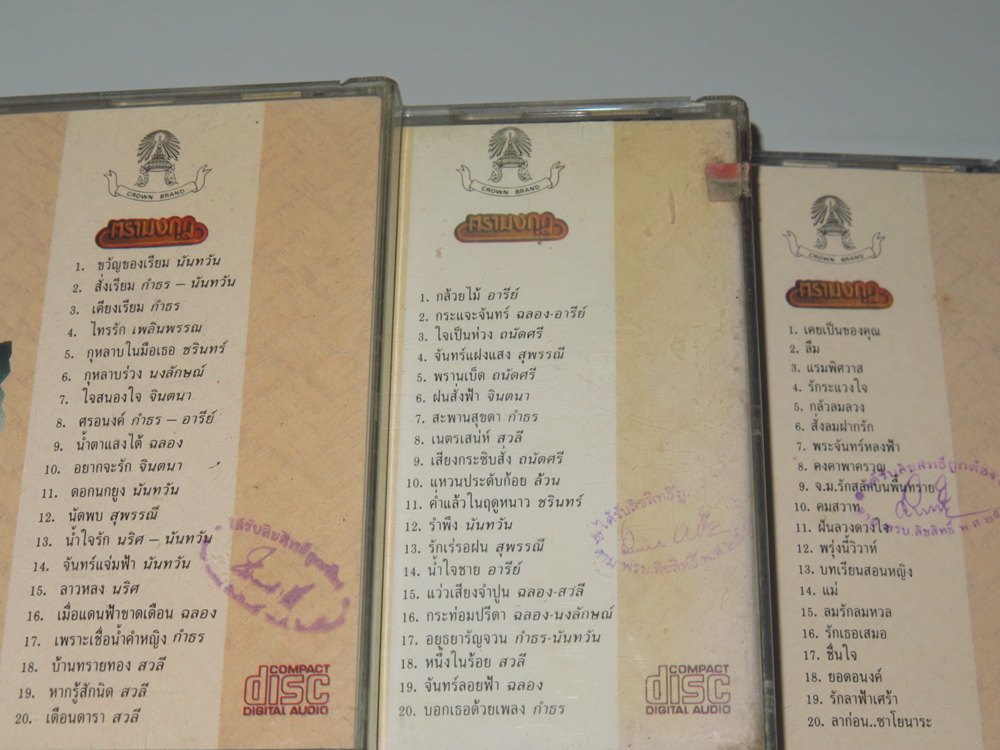 CROWN BRAND
ตรามงกุฎ
1. ขวัญของเรียม นันทวัน
2. สั่งเรียม กำธร – นันทวัน
3. เคียงเรียม กำธร
4. ไทรรัก เพลินพรรณ
5. กุหลาบในมือเธอ ชรินทร์
6. กุหลาบร่วง นงลักษณ์
7. ใจสนองใจ จินตนา
8. ศรอนงค์ กำธร – อารีย์
9. น้ำตาแสงใต้ ฉลอง
10. อยากจะรัก จินตนา
11. ดอกนกยูง นันทวัน
12. นัดพบ สุพรรณี
13. น้ำใจรัก นริศ – นันทวัน
14. จันทร์แจ่มฟ้า นันทวัน
15. ลาวหลง นริศ
16. เมื่อแดนฟ้าขาดเดือน ฉลอง
17. เพราะเชื่อน้ำคำหญิง กำธร
18. บ้านทรายทอง สวลี
19. หากรู้สักนิด สวลี
20. เดือนดารา สวลี
COMPACT
disc
DIGITAL AUDIO
CROWN BRAND
ตรามงกุฎ
1. กล้วยไม้ อารีย์
2. กระแจะจันทร์ ฉลอง-อารีย์
3. ใจเป็นห่วง ถนัดศรี
4. จันทร์แฝงแสง สุพรรณี
5. พรานเบ็ด ถนัดศรี
6. ฝนสั่งฟ้า จินตนา
7. สะพานสุขตา กำธร
8. เนตรเสน่ห์ สวลี
9. เสียงกระซิบสั่ง ถนัดศรี
10. แหวนประดับก้อย ล้วน
11. ค่ำแล้วในฤดูหนาว ชรินทร์
12. รำพึง นันทวัน
13. รักเร่รอฝน สุพรรณี
14. น้ำใจชาย อารีย์
15. แว่วเสียงจำปูน ฉลอง-สวลี
16. กระท่อมปรีดา ฉลอง-นงลักษณ์
17. อยุธยารัญจวน กำธร-นันทวัน
18. หนึ่งในร้อย สวลี
19. จันทร์ลอยฟ้า ฉลอง
20. บอกเธอด้วยเพลง กำธร
ได้รับลิขสิทธิ์ถู
ตาม พรบ.ลิขสิทธิ์ พ.ศ.
COMPACT
disc
DIGITAL AUDIO
CROWN BRAND
ตรามงกุฎ
1. เคยเป็นของคุณ
2. ลืม
3. แรมพิศวาส
4. รักระแวงใจ
5. กลัวลมลวง
6. สั่งลมฝากรัก
7. พระจันทร์หลงฟ้า
8. คงคาพาครวญ
9. จ.ม.รักสลักบนพื้นทราย
10. คมสวาท
11. ฝันลวงดวงใจ
12. พรุ่งนี้วิวาห์
13. บทเรียนสอนหญิง
14. แม่
15. ลมรักลมหวล
16. รักเธอเสมอ
17. ชื่นใจ
18. ยอดอนงค์
19. รักลาฟ้าเศร้า
20. ลาก่อน..ซาโยนาระ
ได้รับลิขสิทธิ์ถูกต้อง
ตาม พรบ.ลิขสิทธิ์ พ.ศ.